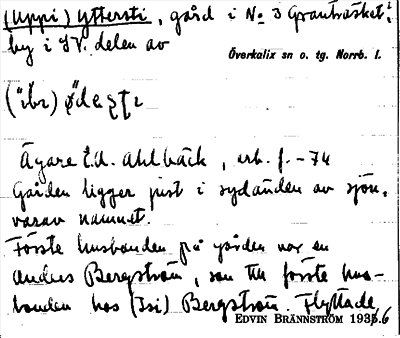 (Uppi) Yttersti, gård i No 3 Granträsket
by i SV. delen av
Överkalix sn o. tg. Norrb. l.
Ägare E.d. Ahlbäck, arb. f. -74
Gården ligger just i sydänden av sjön,
varav namnet.
Förste husbonden på gården var en
Anders Bergström, son till förste hus-
bonden hos (Isi) Bergström. Flyttade
EDVIN BRÄNNSTRÖM 1936